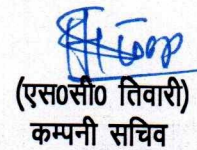 (एस0सी0 तिवारी)
कम्पनी सचिव